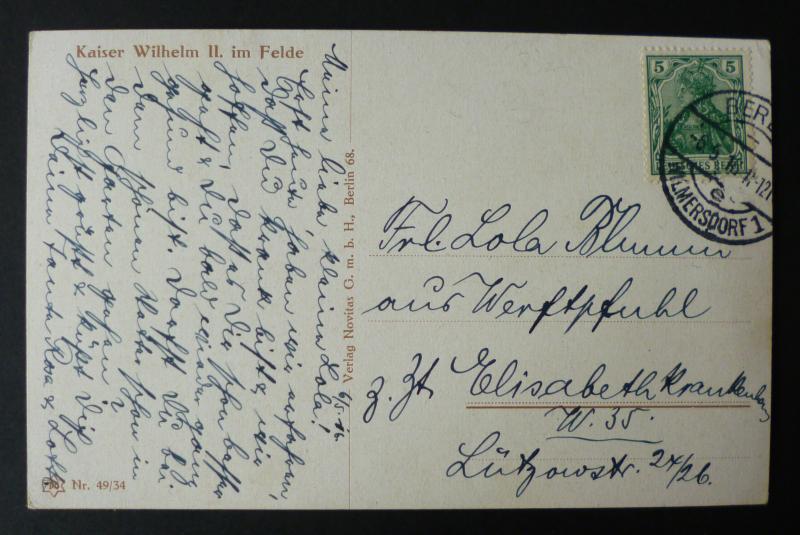 Kaiser Wilhelm II. im Felde
6/5.16.
Meine liebe, kleine Lola!
Erst heute haben wir erfahren,
daß Du krank bist & wir
hoffen, daß es Dir schon besser
geht & Du bald wieder ganz
gesund bist. Darfst Du bei
dem schönen Wetter schon in
den Garten gehen?
Herzlichst grüßt & küßt Dich
Deine Tante Rosa &
Verlag Novitas G. m. b. H., Berlin 68.
5 5
DEUTSCHES REICH
BERL
WILMERSDORF 1
Frl. Lola Blumm
aus Werftpfuhl
z. Zt. Elisabethkrankenhaus
W. 35.
Lützowstr. 24/26.
Nr. 49/34